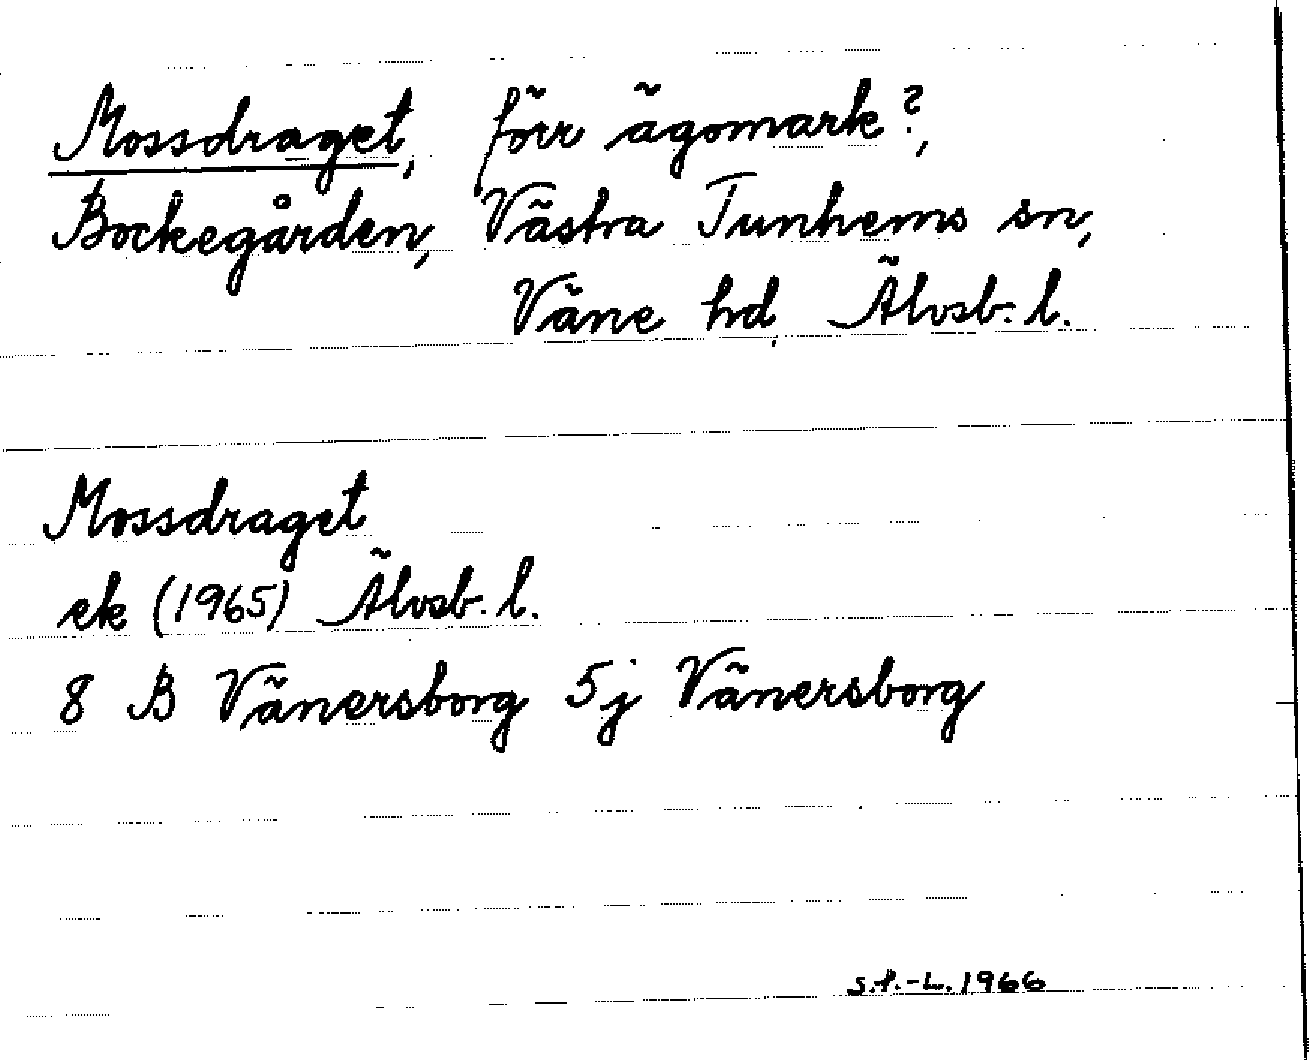 Mossdraget, förr ägomark?,
Bockegården, Västra Tunhems sn,
Väne hd, Älvsb. l.
Mossdraget
ek (1965) Älvsb. l.
8 B Vänersborg 5j Vänersborg
S.f.-L. 1966